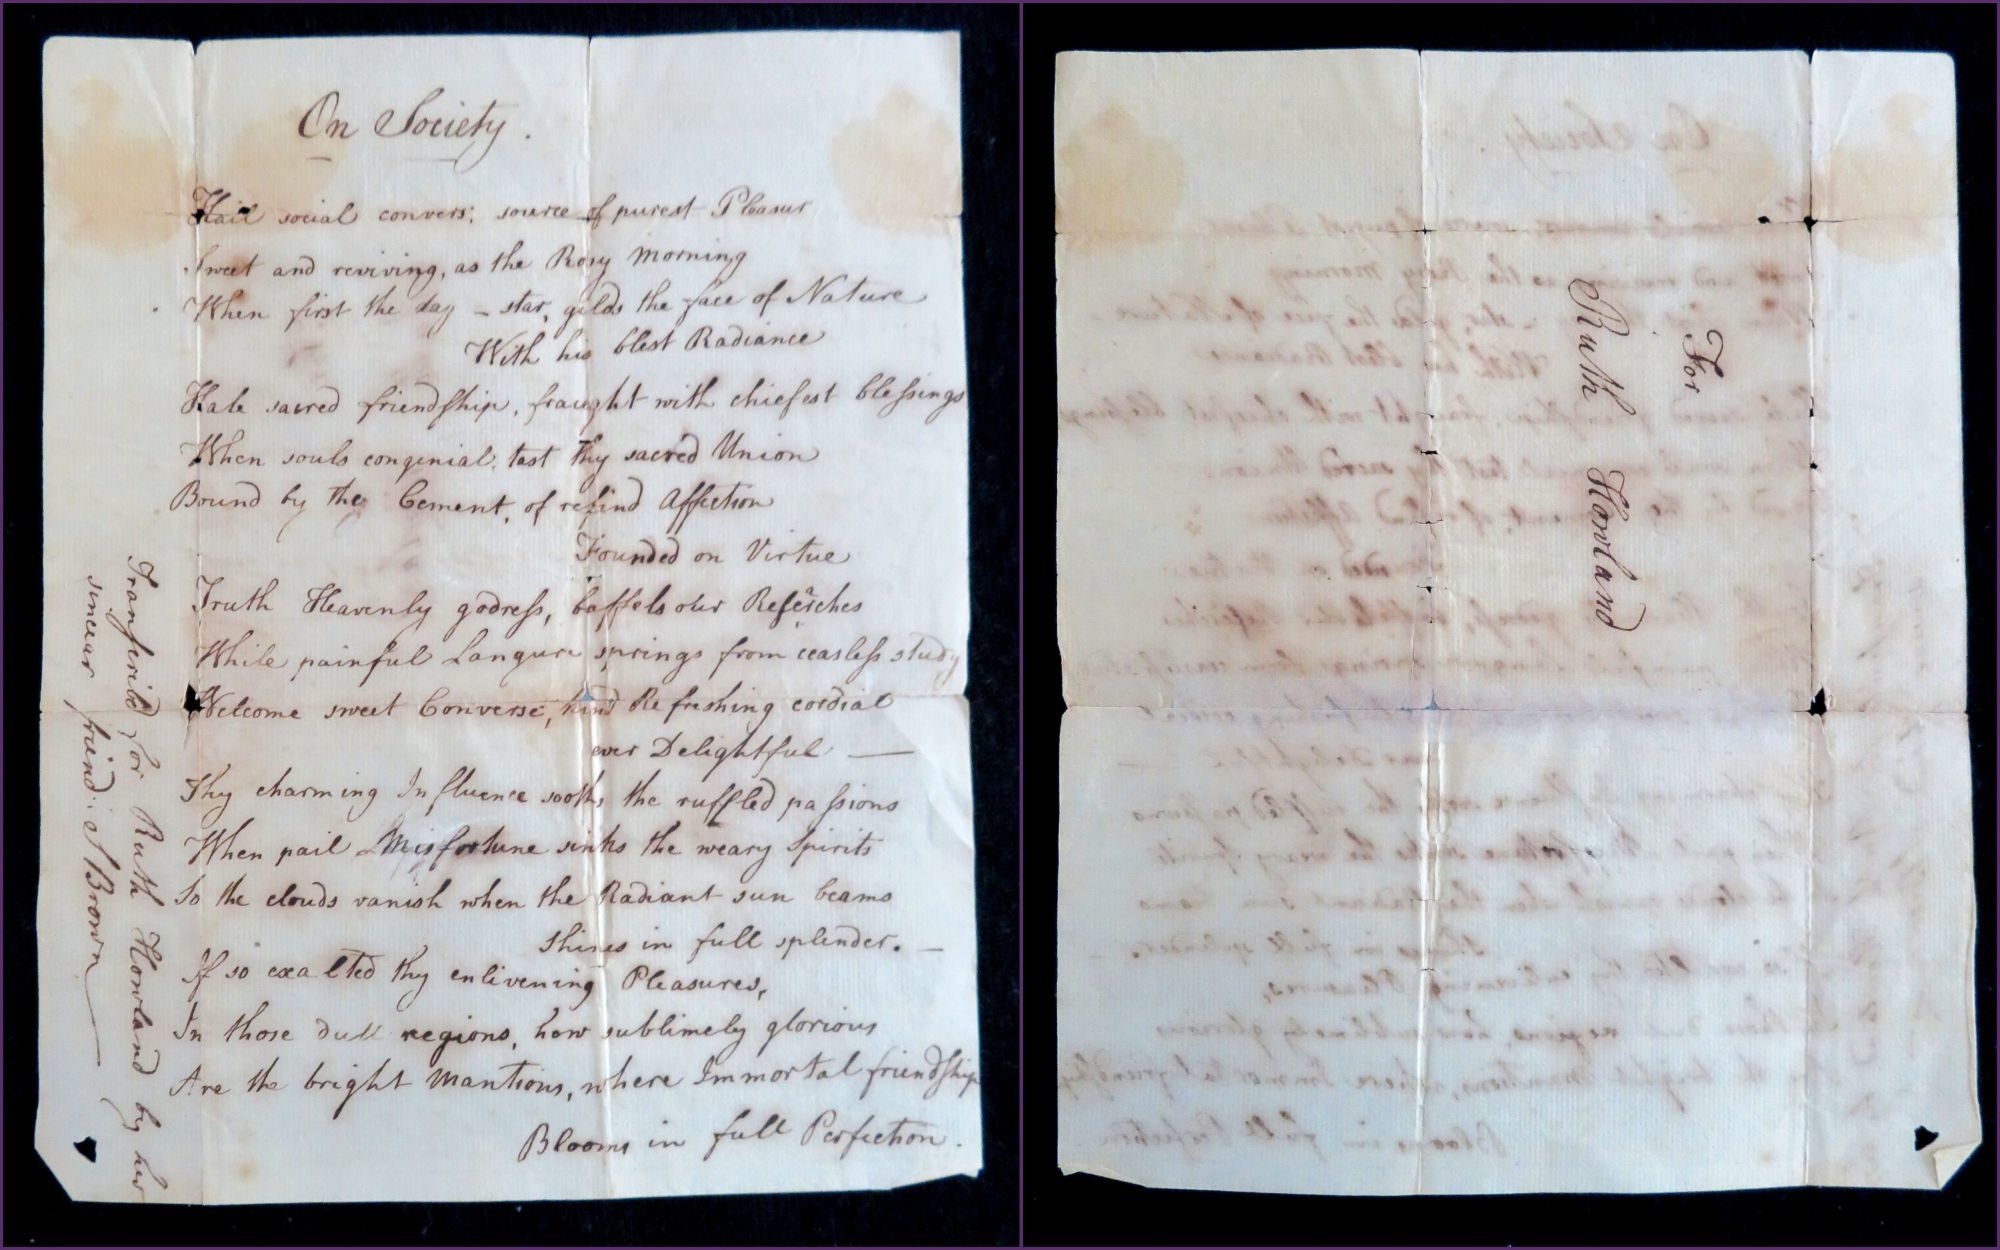 On Society.
Hail social convers; source of purest Pleasur
Sweet and reviving, as the Rosy Morning
When first the day - star, gilds the face of Nature
With his blest Radiance
Hale sacred friendship, fraught with chiefest blessings
When souls congenial, tast thy sacred Union
Bound by the Cement, of refind Affection
Founded on Virtue
Truth Heavenly godress, baffels our Reserches
While painful Langure springs from ceasless study
Welcome sweet Converse, kind Refreshing cordial
ever Delightful —
Thy charming Influence sooths the ruffled passions
When pail Misfortune sinks the weary Spirits
So the clouds vanish when the Radiant sun beams
Shines in full splender. —
If so exalted thy enlivening Pleasures,
In those dull regions, how sublimely glorious
Are the bright Mantions, where Immortal friendship
Blooms in full Perfection.
Transferibd for Ruth Howland by her
sincear friend: S Brown
For
Ruth Howland